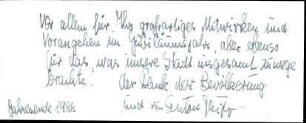 Vor allem für Ihr großartiges Mitwirken und
Vorangehen im Jubiläumsjahr, aber ebenso
für das, was unsere Stadt insgesamt zuwege
brachte. der Dank der Bevölkerung
Jahresende 1988 und von